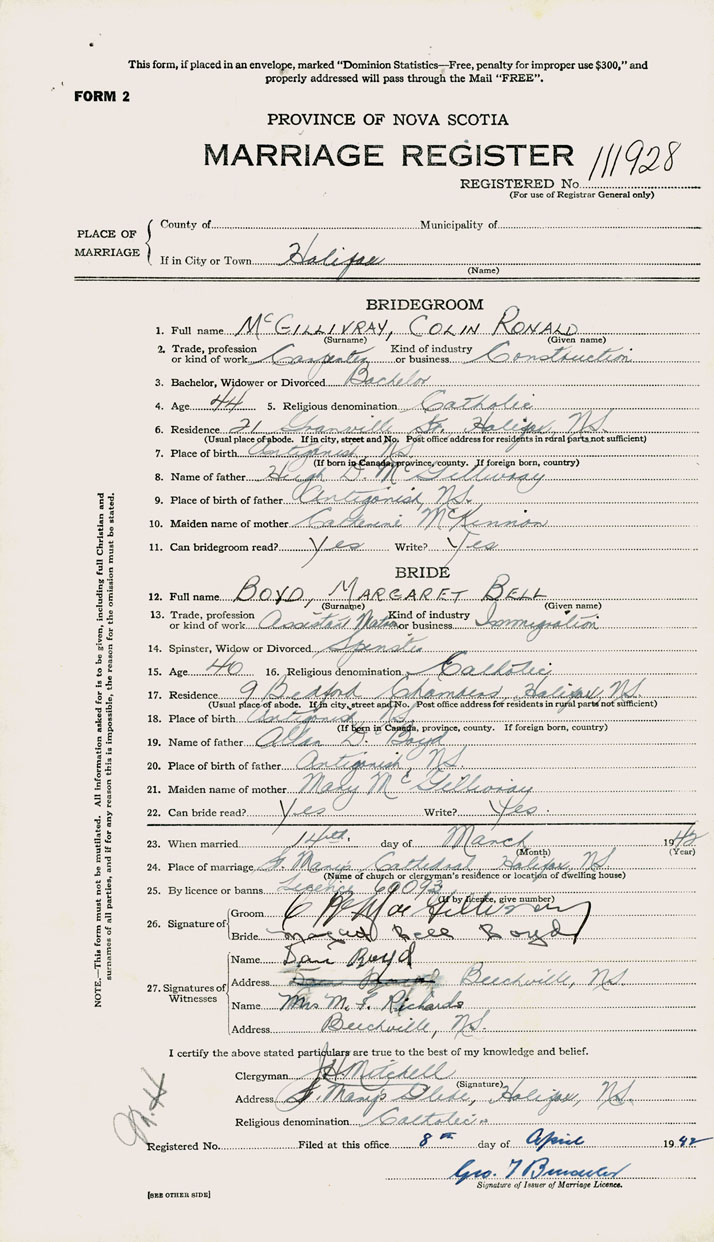 This form, if placed in an envelope, marked "Dominion Statistics—Free, penalty for improper use $300," and
properly addressed will pass through the Mail "FREE".
FORM 2
PROVINCE OF NOVA SCOTIA
MARRIAGE REGISTER 111928
REGISTERED No.
(For use of Registrar General only)
PLACE OF MARRIAGE
County of Municipality of
If in City or Town Halifax
(Name)
BRIDEGROOM
1. Full name McGILLIVRAY, COLIN RONALD
(Surname) (Given name)
2. Trade, profession or kind of work Carpenter Kind of industry or business Construction
3. Bachelor, Widower or Divorced Bachelor
4. Age 44 5. Religious denomination Catholic
6. Residence 21 Granville St. Halifax, N.S.
(Usual place of abode. If in city, street and No. Post office address for residents in rural parts not sufficient)
7. Place of birth Antigonish, N.S.
(If born in Canada, province, county. If foreign born, country)
8. Name of father Hugh D. McGillivray
9. Place of birth of father Antigonish, N.S.
10. Maiden name of mother Catherine McKinnon
11. Can bridegroom read? Yes Write? Yes
BRIDE
12. Full name BOYD, MARGARET BELL
(Surname) (Given name)
13. Trade, profession or kind of work Assistant Matron Kind of industry or business Immigration
14. Spinster, Widow or Divorced Spinster
15. Age 40 16. Religious denomination Catholic
17. Residence 9 Bedford Chambers, Halifax, N.S.
(Usual place of abode. If in city, street and No. Post office address for residents in rural parts not sufficient)
18. Place of birth Antigonish, N.S.
(If born in Canada, province, county. If foreign born, country)
19. Name of father Allan D. Boyd
20. Place of birth of father Antigonish, N.S.
21. Maiden name of mother Mary McGillivray
22. Can bride read? Yes Write? Yes.
23. When married 14th day of March 1942
(Month) (Year)
24. Place of marriage St Mary's Cathedral Halifax N.S
(Name of church or clergyman's residence or location of dwelling house)
25. By licence or banns Licence 69093
(If by licence, give number)
26. Signature of
Groom C R MacGillivray
Bride Margaret Bell Boyd
27. Signatures of Witnesses
Name Dan Boyd
Address Beechville, N.S.
Name Mrs M. F. Richards
Address Beechville, N.S.
I certify the above stated particulars are true to the best of my knowledge and belief.
Clergyman J H Mitchell
(Signature)
Address St Mary's Glebe, Halifax, N.S.
Religious denomination Catholic
Registered No. Filed at this office 8th day of April 1942
Geo. T
Signature of Issuer of Marriage Licence.
[SEE OTHER SIDE]
NOTE.—This form must not be mutilated. All information asked for is to be given, including full Christian and
surnames of all parties, and if for any reason this is impossible, the reason for the omission must be stated.